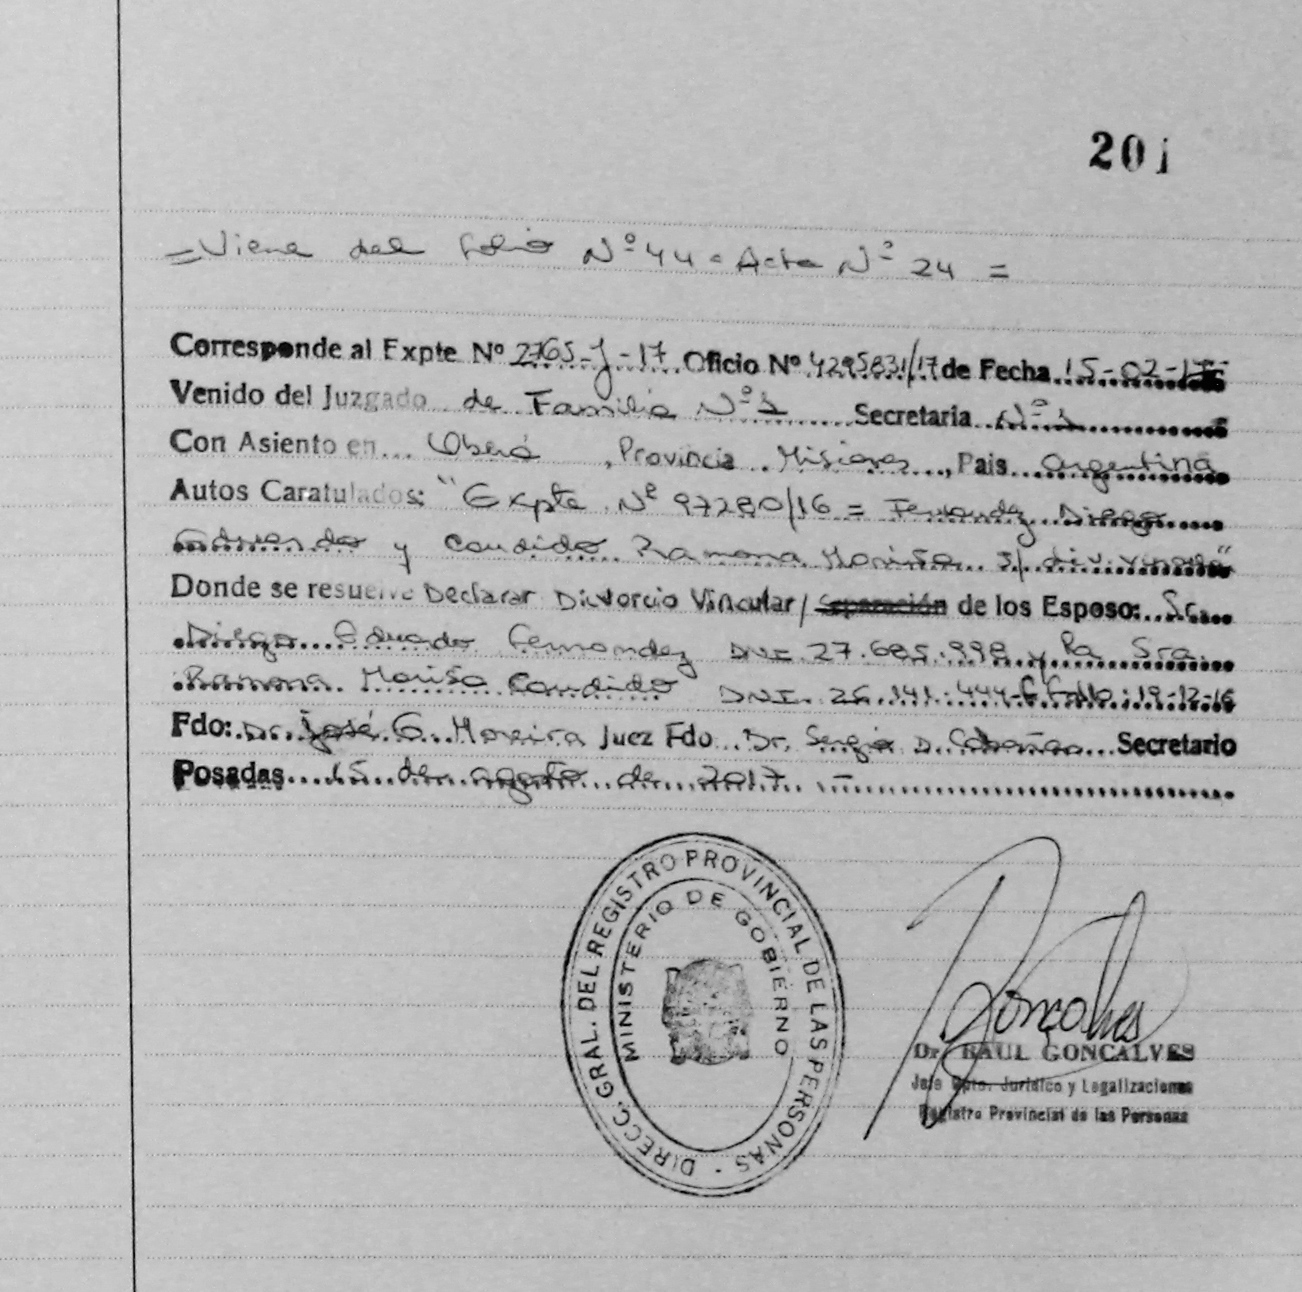 201
= Viene del folio Nº 44 = Acta Nº 24 =
Corresponde al Expte Nº 2765-J-17 Oficio Nº 4295831/17 de Fecha 15-02-17
Venido del Juzgado de Familia Nº 1 Secretaria Nº 1
Con Asiento en Oberá, Provincia Misiones, Pais Argentina
Autos Caratulados: "Expte Nº 97280/16 = Fernandez Diego
Eduardo y Candido Ramona Marisa s/ div. vincular"
Donde se resuelve Declarar Divorcio Vincular/ Separación de los Esposo: Sr.
Diego Eduardo Fernandez DNI 27.685.998 y la Sra.
Ramona Marisa Candido DNI. 26.141.444 - F. Fallo: 19-12-16
Fdo: Dr. José G. Moreira Juez Fdo Dr. Sergio D. Secretario
Posadas 15 de agosto de 2017 -
DIRECC. GRAL. DEL REGISTRO PROVINCIAL DE LAS PERSONAS -
MINISTERIO DE GOBIERNO
Goncalves
Dr. RAUL GONCALVES
Jefe Dpto. Jurídico y Legalizaciones
Registro Provincial de las Personas